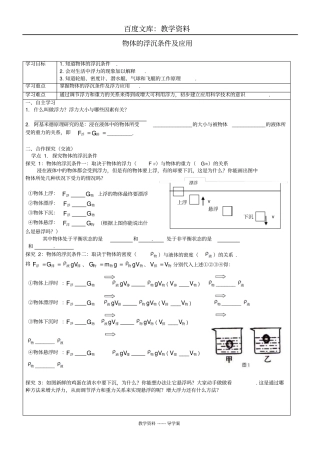 百度文库：教学资料
物体的浮沉条件及应用
学习目标
1. 知道物体的浮沉条件 .
2. 会对生活中浮力的现象加以解释
3. 知道轮船、密度计、潜水艇、气球和飞艇的工作原理 .
学习重点 掌握物体的浮沉条件及浮力应用 .
学习难点 通过调节浮力和重力的关系来得到或增大可利用浮力，初步建立应用科学技术的意识 .
一、自主学习
1．什么叫做浮力？浮力大小与哪些因素有关？
2．阿基米德原理研究的是：浸在液体中的物体所受____的大小与被物体____的液体所
受的重力的关系，即 F浮=G排=____.
二、合作探究（交流）
学点 1．探究物体的浮沉条件
探究 1：物体的浮沉条件一：取决于物体的浮力（ F浮）与物体的重力（ G物）的关系
浸在液体中的物体都会受到浮力，但是有的物体要上浮，有的却要下沉，这是为什么？你能画出图中
物体所处几种状况下受力的情况吗？
漂浮
上浮
悬浮
下沉
①物体上浮： F浮 ____G物 上浮的物体最终要漂浮
②物体漂浮： F浮 ____G物
③物体下沉： F浮 ____G物
④物体悬浮： F浮 ____G物 （根据上图你能说出什
么是悬浮吗？）
其中物体处于平衡状态的是____和____，处于非平衡状态的是____
和____
探究 2：物体的浮沉条件二：取决于物体的密度（ ρ物）与液体的密度（ ρ液）的关系 .
将 F浮=G排=ρ液gV排、G物=m物g=ρ物gV物、V排=V物 分别代入上述①②③④得：
①物体上浮时： F浮 ____G物 ⇒ ρ液gV排 ____ρ物gV物(V排 V物) ⇒ ρ液 ρ物
②物体漂浮时： F浮 ____G物 ⇒ ρ液gV排 ____ρ物gV物(V排 V物) ⇒ ρ液 ρ物
③物体下沉时： F浮 ____G物 ⇒ ρ液gV排 ____ρ物gV物(V排 V物) ⇒ ρ液 ρ物
④物体悬浮时： F浮 ____G物 ⇒ ρ液gV排 ____ρ物gV物(V排 V物) ⇒
ρ液 ρ物
甲 乙
图1
探究 3：如图新鲜的鸡蛋在清水中要下沉，为什么？你能想办法让它悬浮吗？大家动手做做看 . 这是通过哪
种方法来增大浮力，从而调节浮力和重力的关系来实现浮沉的呢？增大浮力还有什么方法？
教学资料 ---- 导学案